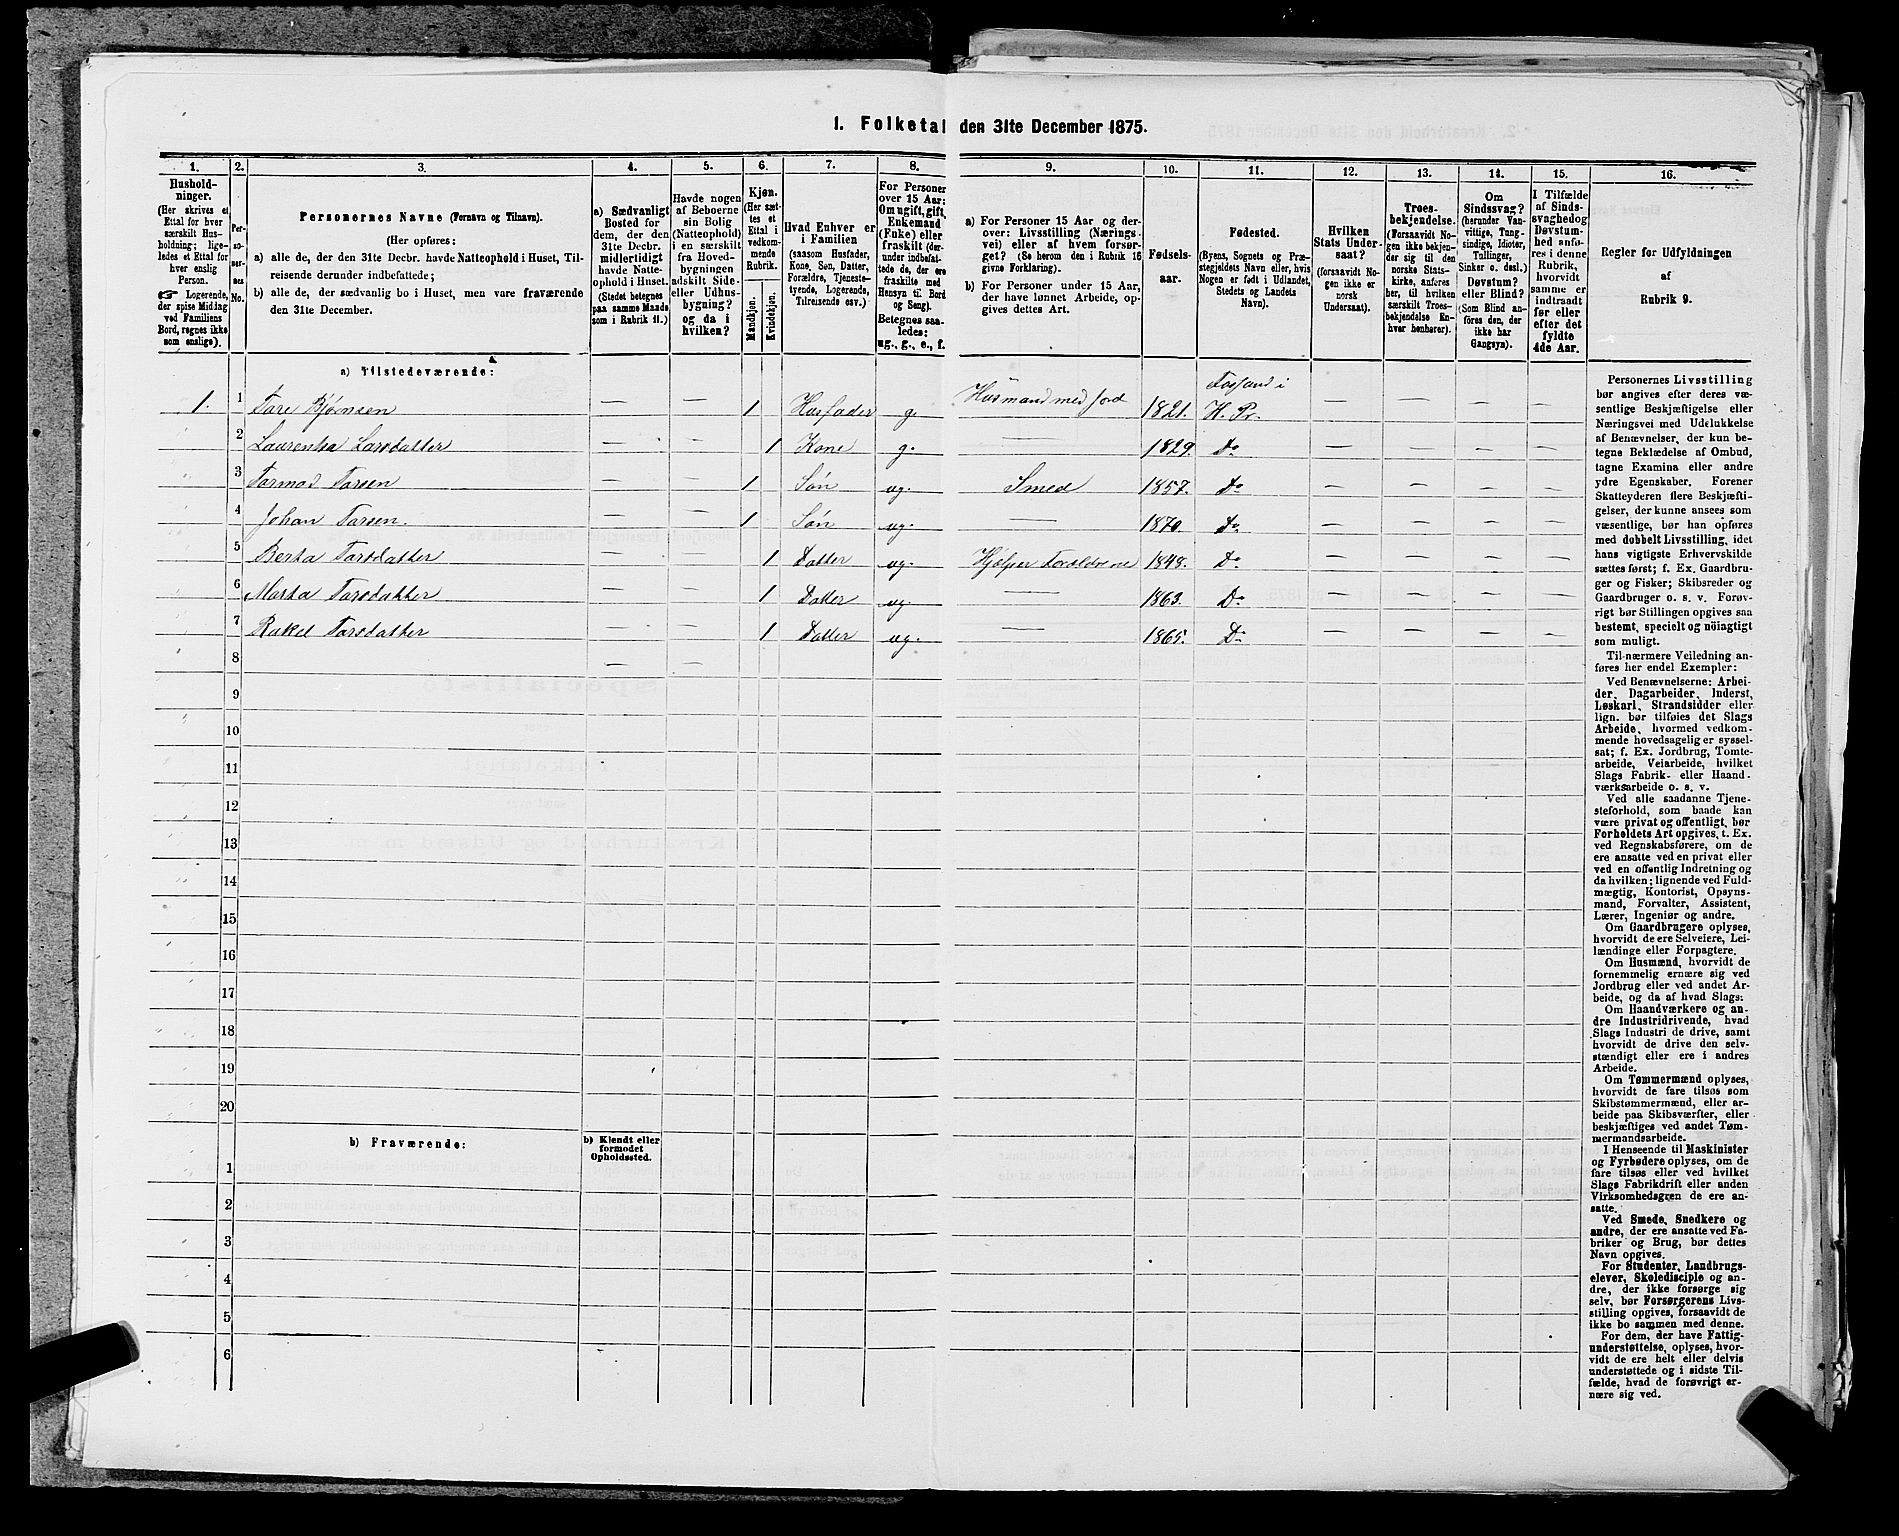 1. Folketal den 31te December 1875.
1. 2. 3. 4. 5. 6. 7. 8. 9. 10. 11. 12. 13. 14. 15. 16.
Hushold-
ninger.
(Her skrives et
Ettal for hver
særskilt Hus-
holdning; lige-
ledes et Ettal for
hver enslig
Person.
☞ Logerende,
der spise Middag
ved Familiens
Bord, regnes ikke
som enslige).
Per-
so-
ner-
nes
No.
Personernes Navne (Fornavn og Tilnavn).
(Her opføres:
a) alle de, der den 31te Decbr. havde Natteophold i Huset, Til-
reisende derunder indbefattede;
b) alle de, der sædvanlig bo i Huset, men vare fraværende
den 31te December.
a) Sædvanligt
Bosted for
dem, der den
31te Decbr.
midlertidigt
havde Natte-
ophold i Huset.
(Stedet betegnes
paa samme Maade
som i Rubrik 11.)
Havde nogen
af Beboerne
sin Bolig
(Natteophold)
i en særskilt
fra Hoved-
bygningen
adskilt Side-
eller Udhus-
bygning?
og da i
hvilken?
Kjøn.
(Her sæt-
tes et
Ettal i
vedkom-
mende
Rubrik.
Mandkjøn.
Kvindekjøn.
Hvad Enhver er
i Familien
(saasom Husfader,
Kone, Søn, Datter,
Forældre, Tjeneste-
tyende, Logerende,
Tilreisende osv.)
For Personer
over 15 Aar:
Om ugift, gift,
Enkemand
(Enke) eller
fraskilt (der-
under indbefat-
tede de, der ere
fraskilte med
Hensyn til Bord
og Seng).
Betegnes saa-
ledes:
ug., g., e., f.
a) For Personer 15 Aar og der-
over: Livsstilling (Nærings-
vei) eller af hvem forsør-
get? (Se herom den i Rubrik 16
givne Forklaring).
b) For Personer under 15 Aar,
der have lønnet Arbeide, op-
gives dettes Art.
Fødsels-
aar.
Fødested.
(Byens, Sognets og Præ-
stegjeldets Navn eller, hvis
Nogen er født i Udlandet,
Stedets og Landets
Navn).
Hvilken
Stats Under-
saat?
(forsaavidt No-
gen ikke er
norsk
Undersaat).
Troes-
bekjendelse.
(Forsaavidt No-
gen ikke bekjen-
der sig til den
norske Stats-
kirke, anføres
her, til hvilken
særskilt Troes-
bekjendelse En-
hver henhører).
Om
Sindssvag?
(herunder Van-
vittige, Tung-
sindige, Idioter,
Tullinger,
Sinker o. desl.)
Døvstum?
eller Blind?
(Som Blind an-
føres den, der
ikke har
Gangsyn).
I Tilfælde
af Sinds-
svaghed og
Døvstum-
hed anfø-
res i denne
Rubrik,
hvorvidt
samme er
indtraadt
før eller
efter det
fyldte
4de Aar.
Regler for Udfyldningen
af
Rubrik 9.
a) Tilstedeværende:
1. 1 Tare Bjørnsen — — 1 Husfader g. Husmand med jord 1821. Fossand i H. Pr. — — — —
2 Laurentia Larsdatter — — 1 Kone g. — 1829. Do — — — —
3 Tarmod Tarsen — — 1 Søn ug. Smed 1857. Do — — — —
4 Johan Tarsen. — — 1 Søn ug. — 1870. Do — — — —
5 Berta Tarsdatter — — 1 Datter ug. Hjælper Forældrene 1848. Do — — — —
6 Marta Tarsdatter — — 1 Datter ug. — 1863. Do — — — —
7 Rakel Tarsdatter — — 1 Datter ug. — 1865. Do — — — —
8 — —
9
10
11
12
13
14
15
16
17
18
19
20
b) Fraværende:
b) Kjendt eller
formodet
Opholdssted.
1
2
3
4
5
6
Personernes Livsstilling
bør angives efter deres væ-
sentlige Beskjæftigelse eller
Næringsvei med Udelukkelse
af Benævnelser, der kun be-
tegne Beklædelse af Ombud,
tagne Examina eller andre
ydre Egenskaber. Forener
Skatteyderen flere Beskjæfti-
gelser, der kunne ansees som
væsentlige, bør han opføres
med dobbelt Livsstilling, idet
hans vigtigste Erhvervskilde
sættes først; f. Ex. Gaardbru-
ger og Fisker; Skibsreder og
Gaardbruger o. s. v. Forøv-
rigt bør Stillingen opgives saa
bestemt, specielt og nöiagtigt
som muligt.
Til nærmere Veiledning an-
føres her endel Exempler:
Ved Benævnelserne: Arbei-
der, Dagarbeider, Inderst,
Løskarl, Strandsidder eller
lign. bør tilføies det Slags
Arbeide, hvormed vedkom-
mende hovedsagelig er syssel-
sat; f. Ex. Jordbrug, Tomte-
arbeide, Veiarbeide, hvilket
Slags Fabrik- eller Haand-
værksarbeide o. s. v.
Ved alle saadanne Tjene-
steforhold, som baade kan
være privat og offentligt, bør
Forholdets Art opgives, t. Ex.
ved Regnskabsførere, om de
ere ansatte ved en privat eller
ved en offentlig Indretning og
da hvilken; lignende ved Fuld-
mægtig, Kontorist, Opsyns-
mand, Forvalter, Assistent,
Lærer, Ingeniør og andre.
Om Gaardbrugere oplyses,
hvorvidt de ere Selveiere, Lei-
lændinge eller Forpagtere.
Om Husmænd, hvorvidt de
fornemmelig ernære sig ved
Jordbrug eller ved andet Ar-
beide, og da af hvad Slags.
Om Haandværkere og an-
dre Industridrivende, hvad
Slags Industri de drive, samt
hvorvidt de drive den selv-
stændigt eller ere i andres
Arbeide.
Om Tømmermænd oplyses,
hvorvidt de fare tilsøs som
Skibstømmermænd, eller ar-
beide paa Skibsværfter, eller
beskjæftiges ved andet Tøm-
mermandsarbeide.
I Henseende til Maskinister
og Fyrbødere oplyses, om de
fare tilsøs eller ved hvilket
Slags Fabrikdrift eller anden
Virksomhedsgren de ere an-
satte.
Ved Smede, Snedkere og
andre, der ere ansatte ved Fa-
briker og Brug, bør dettes
Navn opgives.
For Studenter, Landbrugs-
elever, Skoledisciple og an-
dre, der ikke forsørge sig
selv, bør Forsørgerens Livs-
stilling opgives, forsaavidt de
ikke bo sammen med denne.
For dem, der have Fattig-
understøttelse, oplyses, hvor-
vidt de ere helt eller delvis
understøttede og i sidste Til-
fælde, hvad de forøvrigt er-
nære sig ved.